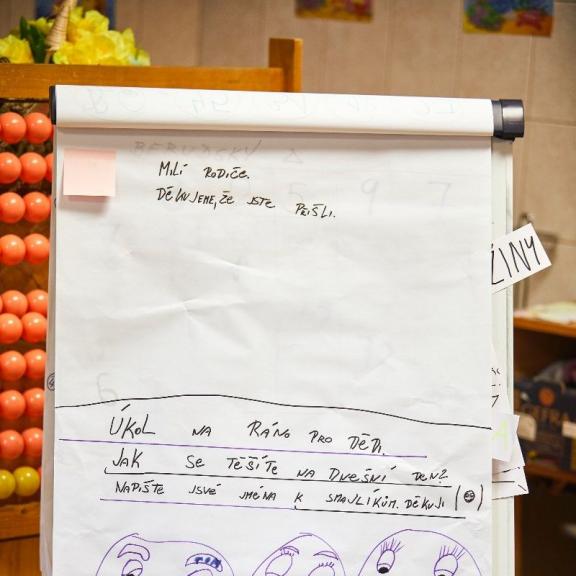 MILÍ RODIČE.
DĚKUJEME, ŽE JSTE PŘIŠLI.
ŽINY
ÚKOL NA RÁNO PRO DĚTI.
JAK SE TĚŠÍTE NA DNEŠNÍ DEN?
NAPIŠTE JSVÉ JMÉNA K SMAJLÍKŮM. DĚKUJI (☺)